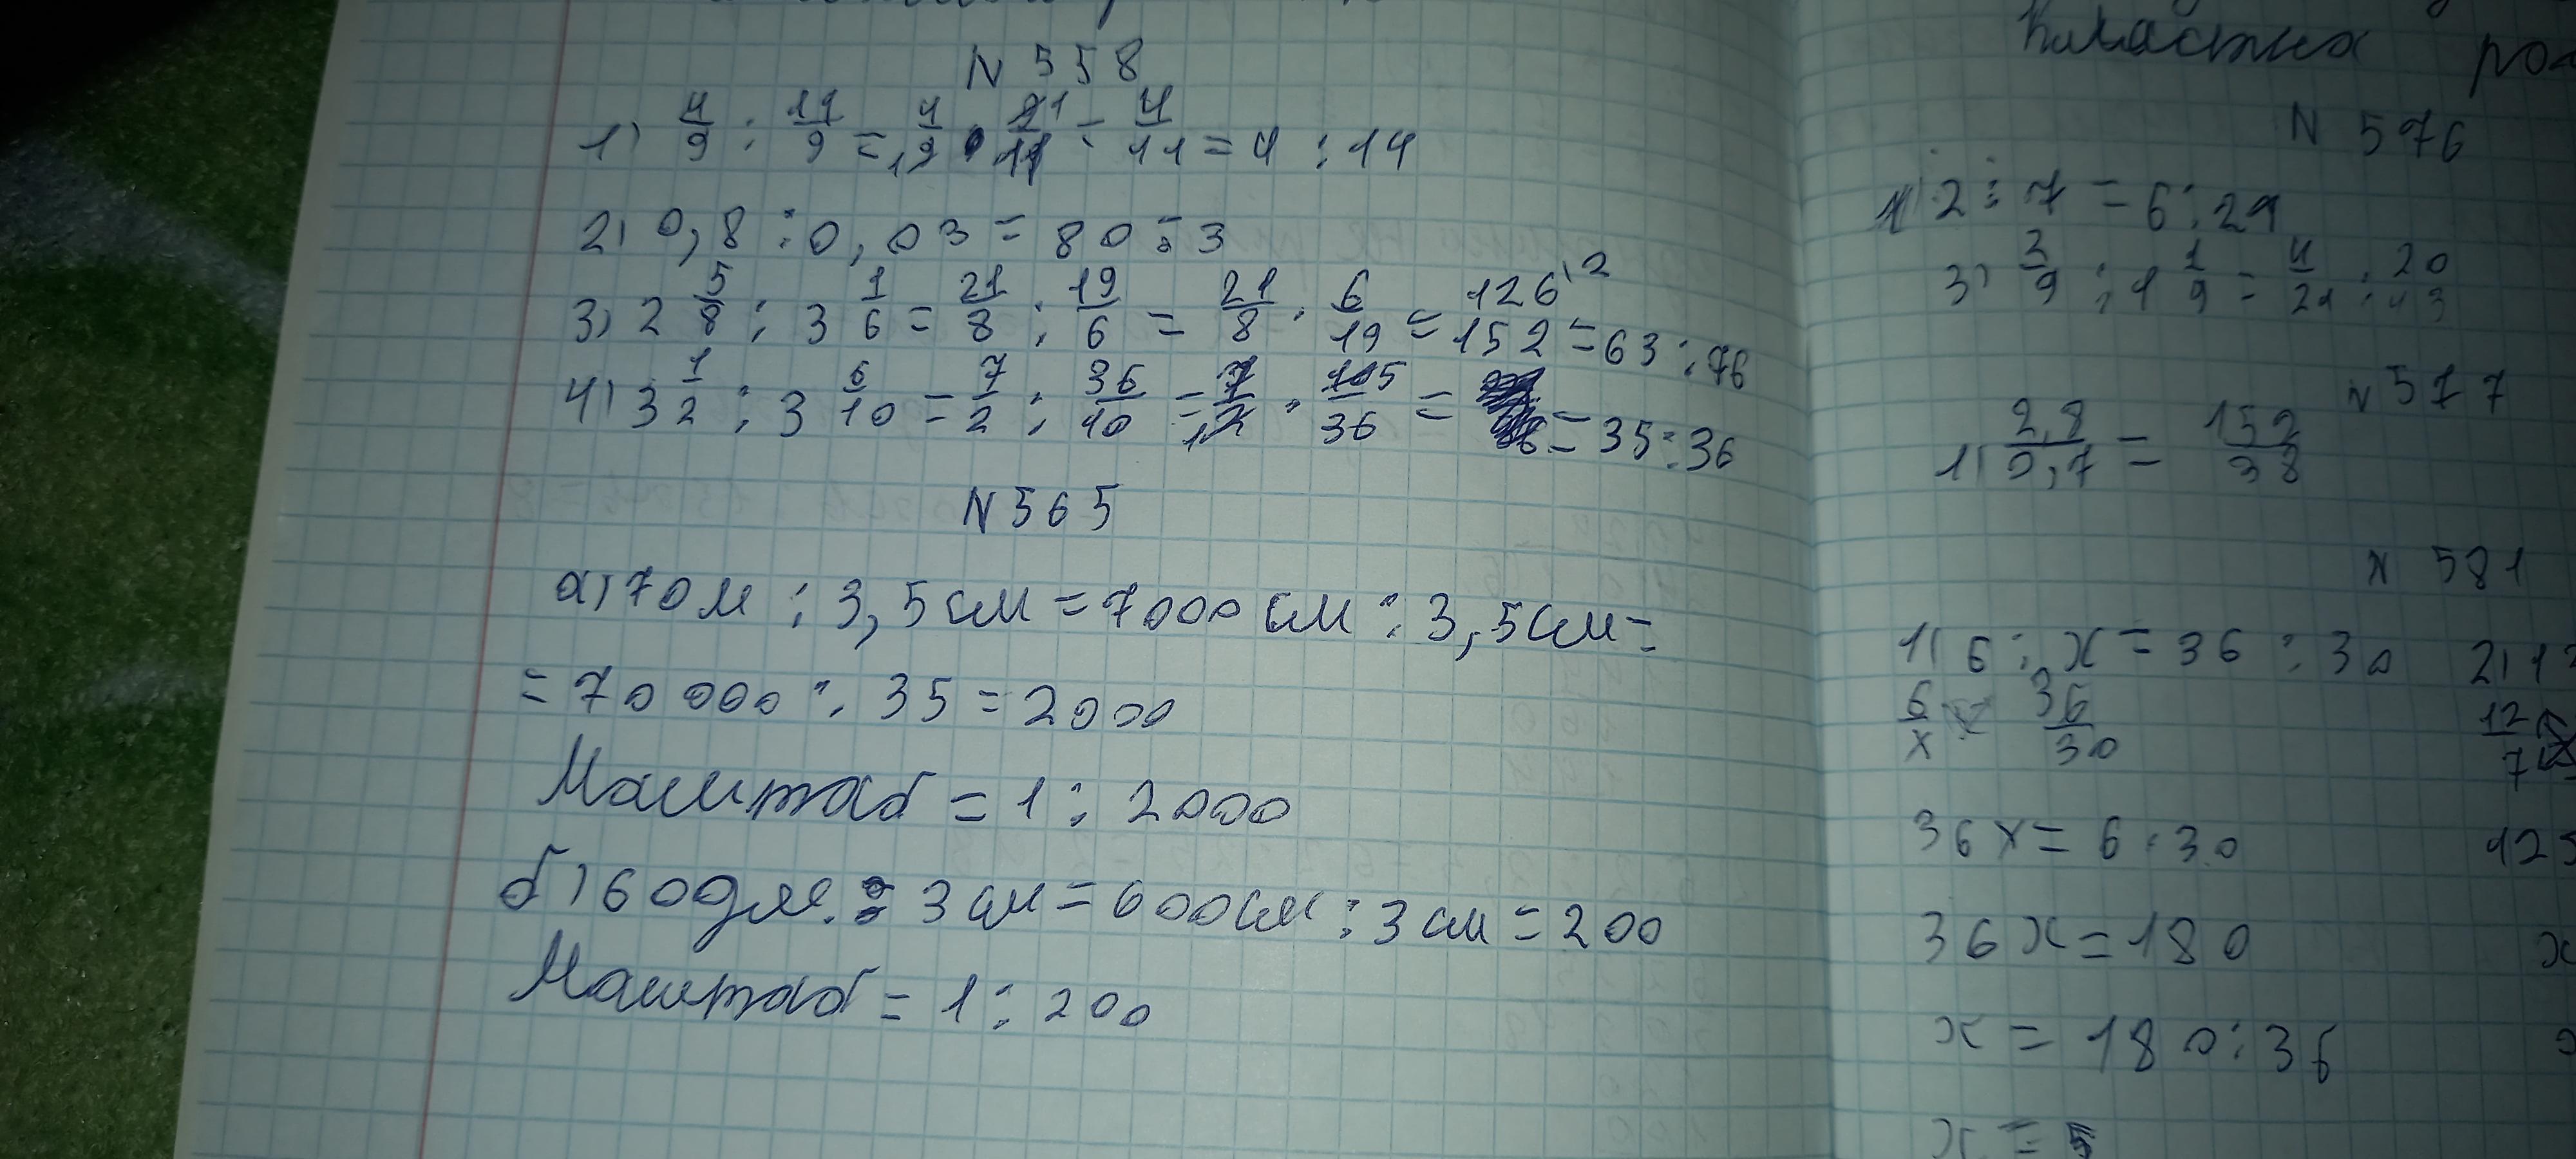 N 558
1) 4/9 : 11/9 = 4/9 · 9/11 = 4/11 = 4 : 11
2) 0,8 : 0,03 = 80 : 3
3) 2 5/8 : 3 1/6 = 21/8 : 19/6 = 21/8 · 6/19 = 126/152 = 63 : 76
4) 3 1/2 : 3 6/10 = 7/2 : 36/10 = 7/2 · 10/36 = = 35 : 36
N 565
а) 70 м : 3,5 см = 7000 см : 3,5 см =
= 70 000 : 35 = 2000
Масштаб = 1 : 2000
б) 60 дм : 3 см = 600 см : 3 см = 200
Масштаб = 1 : 200
N 576
1) 2 : 7 = 6 : 21
N 577
1) 2,8/0,7 = 152/38
N 581
1) 6 : x = 36 : 30
6/x = 36/30
36x = 6 · 30
36x = 180
x = 180 : 36
x = 5